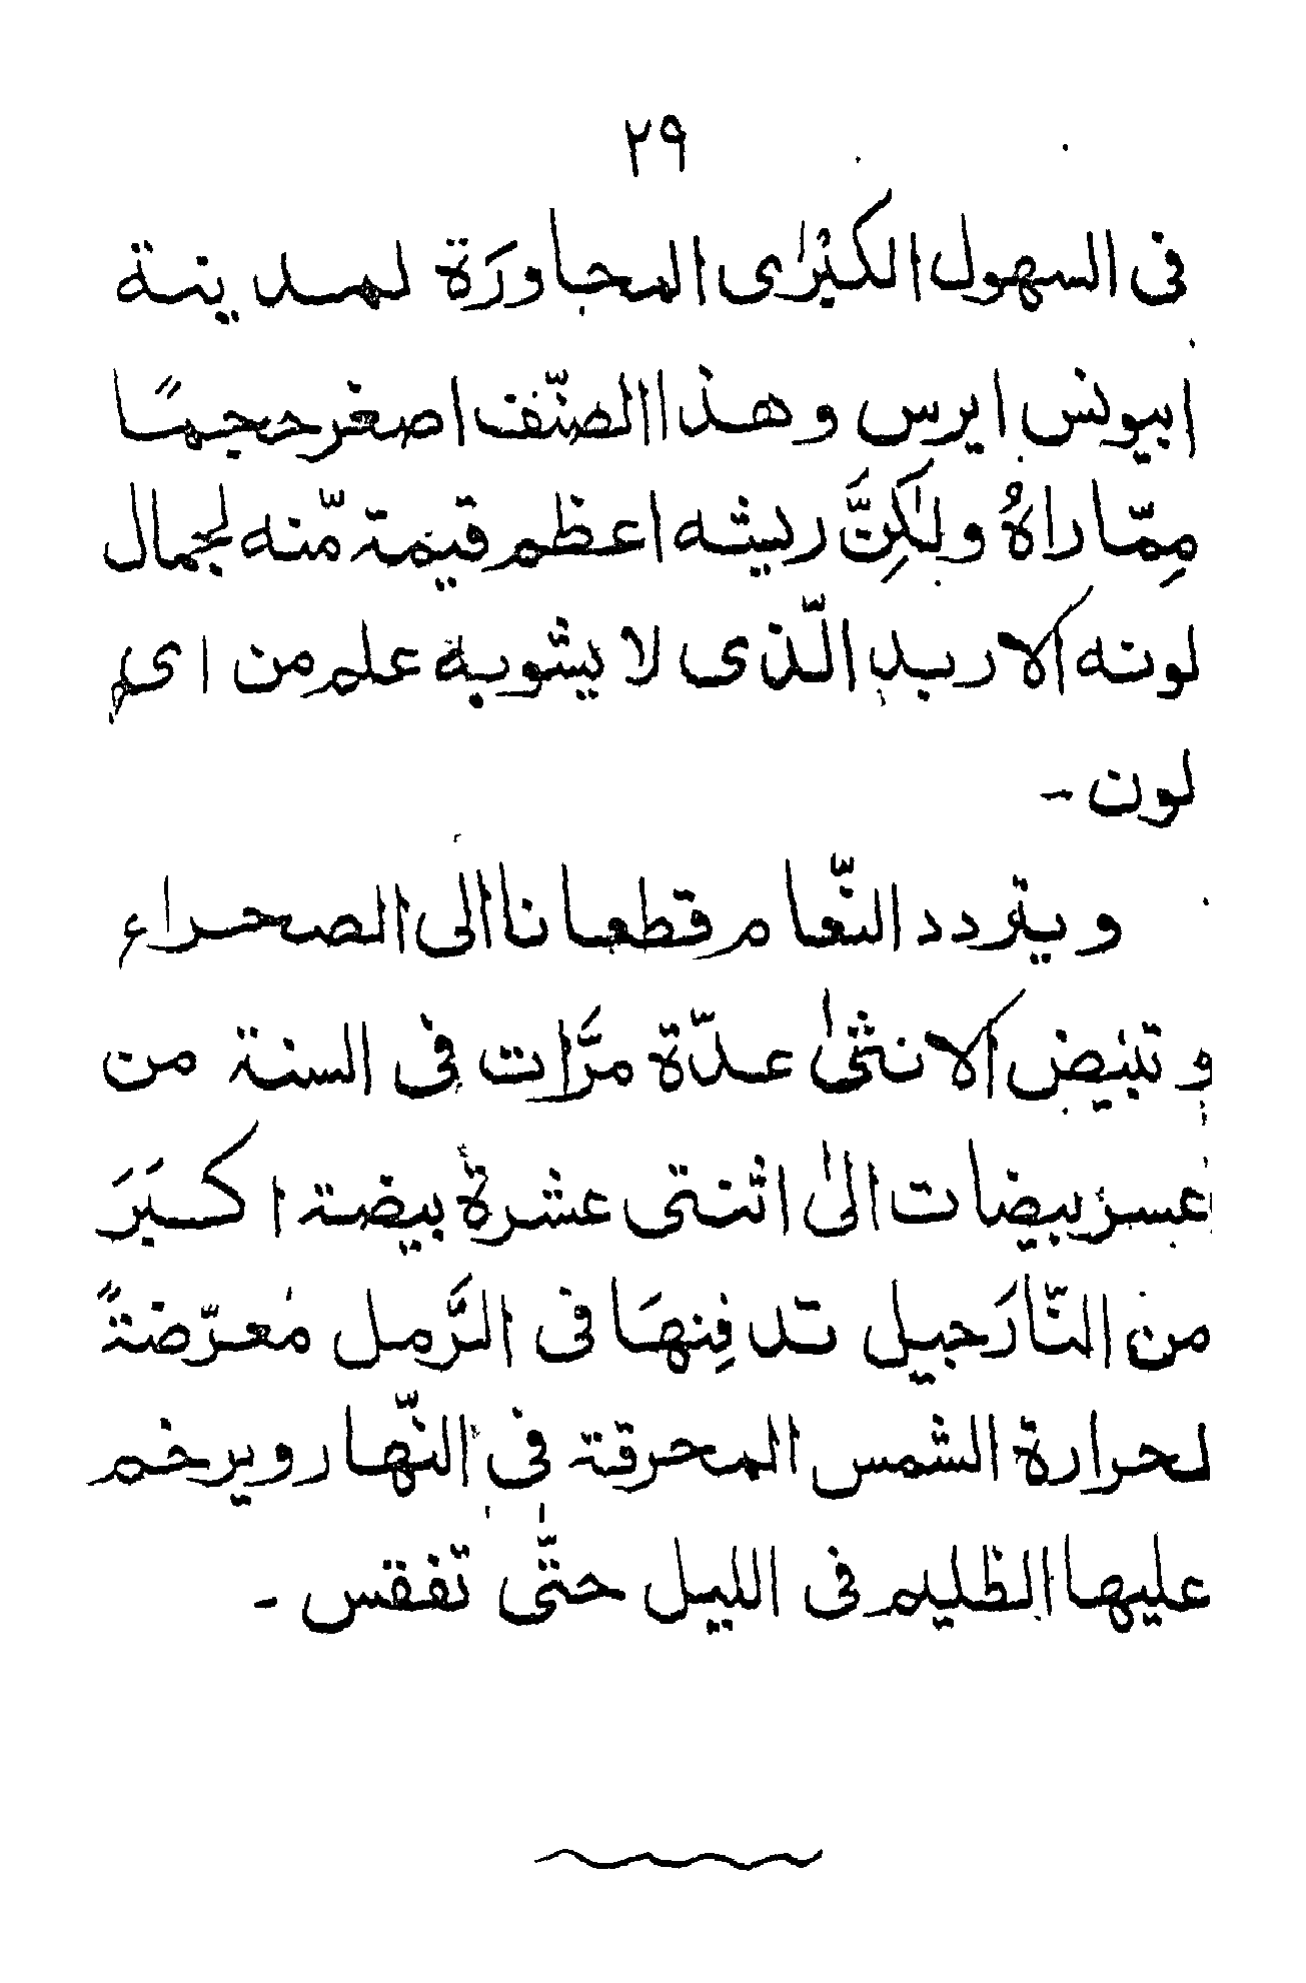 ٢٩
فى السهول الكبْرٰى المجاورَة لمدينة
ابيونس ايرس وهذا الصنّف اصغر حجمًا
مِمّا راهُ ولٰكِنَّ ريشه اعظم قيمة مّنه لجمال
لونه الاربد الّذى لا يشوبه علم من اى
لون -
ويتردد النّعام قطعانا الى الصحراء
و تبيض الانثىٰ عدّة مرَّات فى السنة من
عسر بيضات الىٰ اثنتى عشرة بيضة اكبَرَ
من النّارَجيل تدفِنهَا فى الرَّمل مُعرّضةً
لحرارة الشمس المحرقة فى النّهار ويرخم
عليها الظليم فى الليل حتّٰى تفقس -